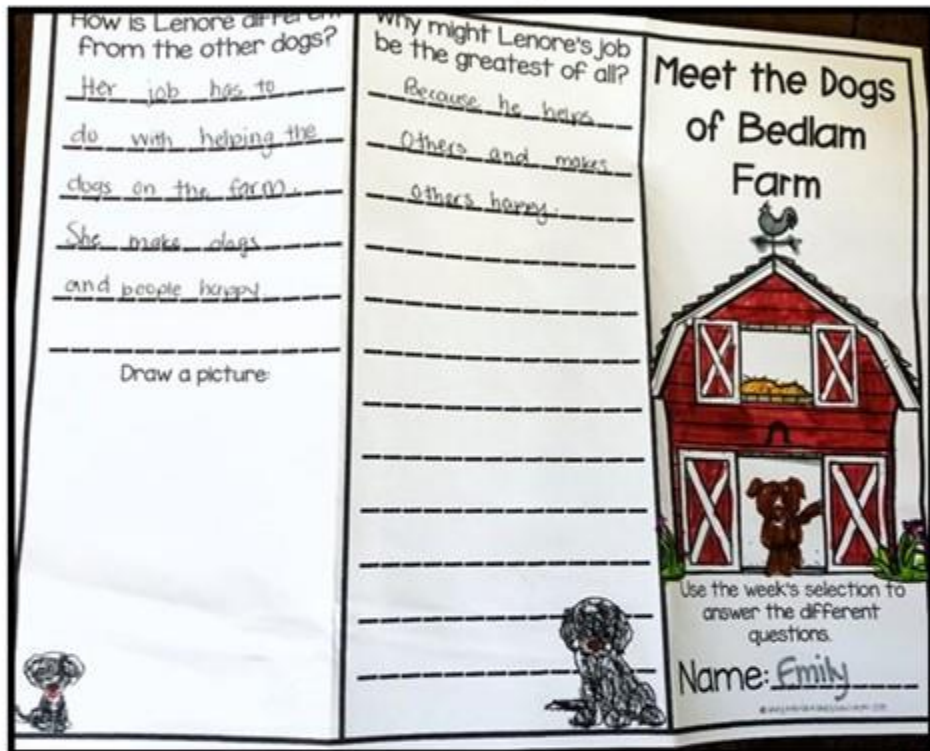 How is Lenore different
from the other dogs?
Her job has to
do with helping the
dogs on the farm.
She make dogs
and people happy
Draw a picture:
Why might Lenore's job
be the greatest of all?
Because he helps
others and makes
others happy.
Meet the Dogs
of Bedlam
Farm
Use the week's selection to
answer the different
questions.
Name: Emily